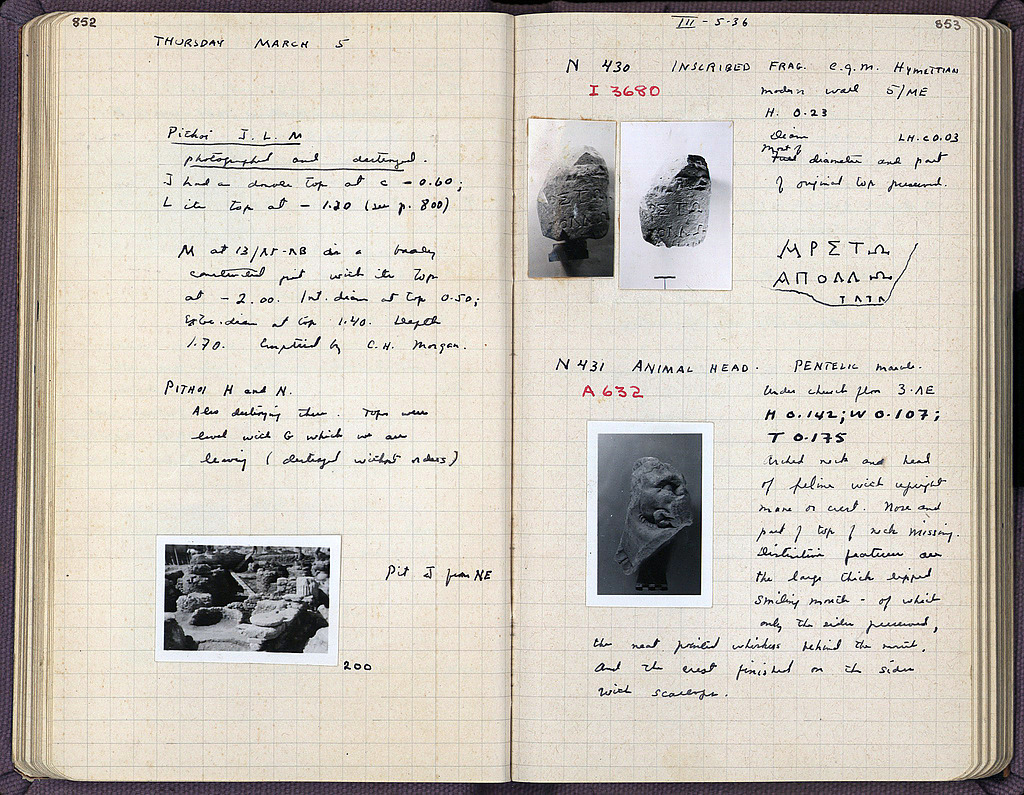 852
THURSDAY MARCH 5
Pithoi J. L. M
photographed and destroyed.
J had a double top at c - 0.60;
L its top at - 1.20 (see p. 800)
M at 13/ is a
constructed pit with its top
at - 2.00. Int. diam at top 0.50;
diam at top 1.40. Depth
1.70. Emptied by C.H. Morgan.
PITHOI H and N.
Also destroying these. Tops were
level with G which we are
leaving (destroyed without orders)
Pit J from NE
200
III - 5-36
853
N 430 INSCRIBED FRAG. C.g.m. HYMETTIAN
I 3680
modern wall 5/ME
H. 0.23
Diam LH. c 0.03
Most of
diameter and part
of original top preserved.
ΑΡΣΤΩ
ΑΠΟΛΛΩ
N 431 ANIMAL HEAD. PENTELIC marble.
A 632
Under church floor 3/ΛΕ
H 0.142; W 0.107;
T 0.175
Arched neck and head
of feline with upright
mane or crest. Nose and
part of top of neck missing.
Distinctive features are
the large thick lipped
smiling mouth - of which
only the sides preserved,
the neat pointed whiskers behind the mouth,
and the crest finished on the sides
with scallops.